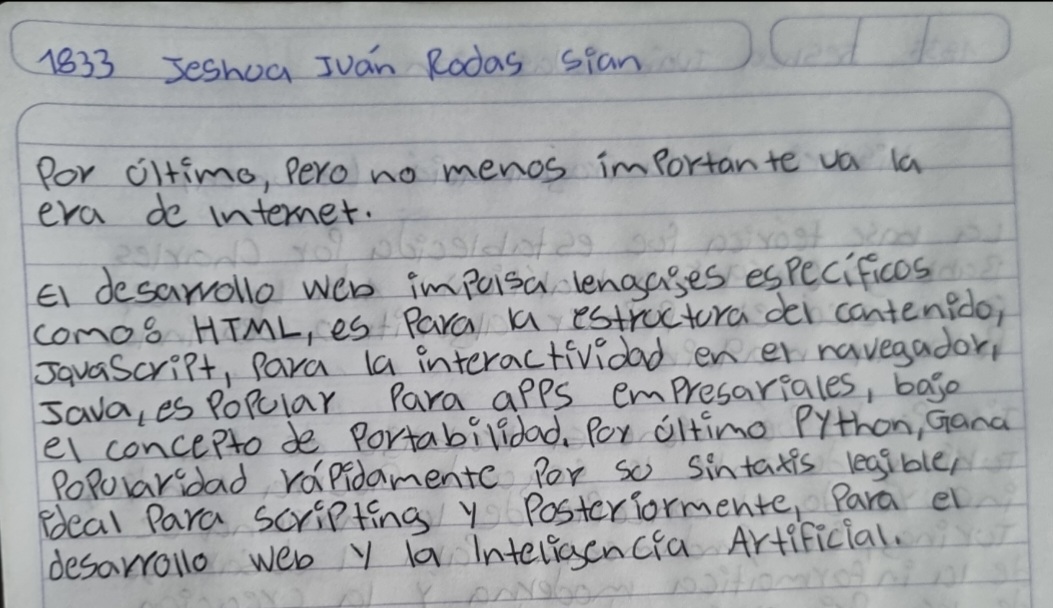 1833 Jeshua Iván Rodas Sian
Por último, Pero no menos importante va la
era de internet.
El desarrollo web impulsa lenguajes específicos
como: HTML, es Para la estructura del contenido,
JavaScript, Para la interactividad en el navegador,
Java, es Popular Para apps empresariales, bajo
el concepto de Portabilidad. Por último Python, Gana
Popularidad rápidamente Por su sintaxis legible,
ideal Para scripting y Posteriormente, Para el
desarrollo web y la Inteligencia Artificial.